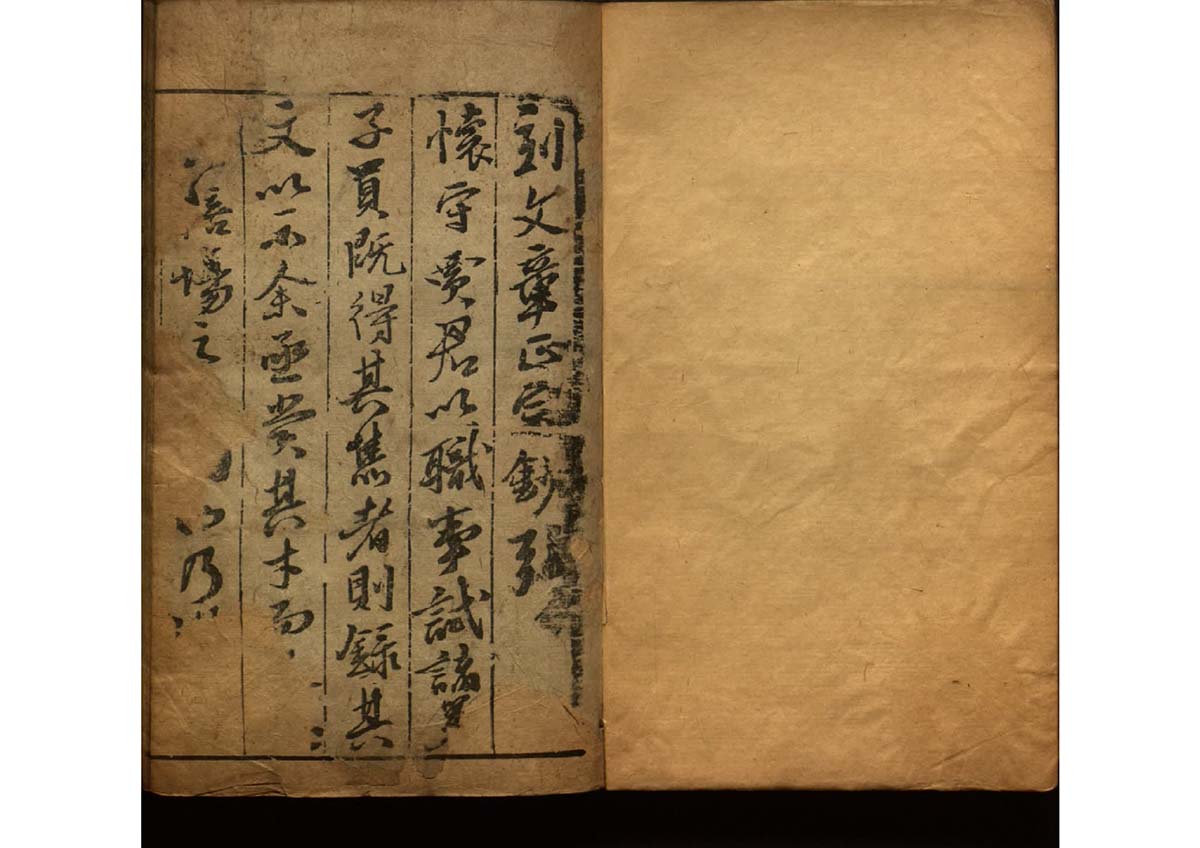 刻文章正宗鈔
懷守賈君以職事試諸
子員既得其雋者則録其
文以示余亟賞其才而
之
乃